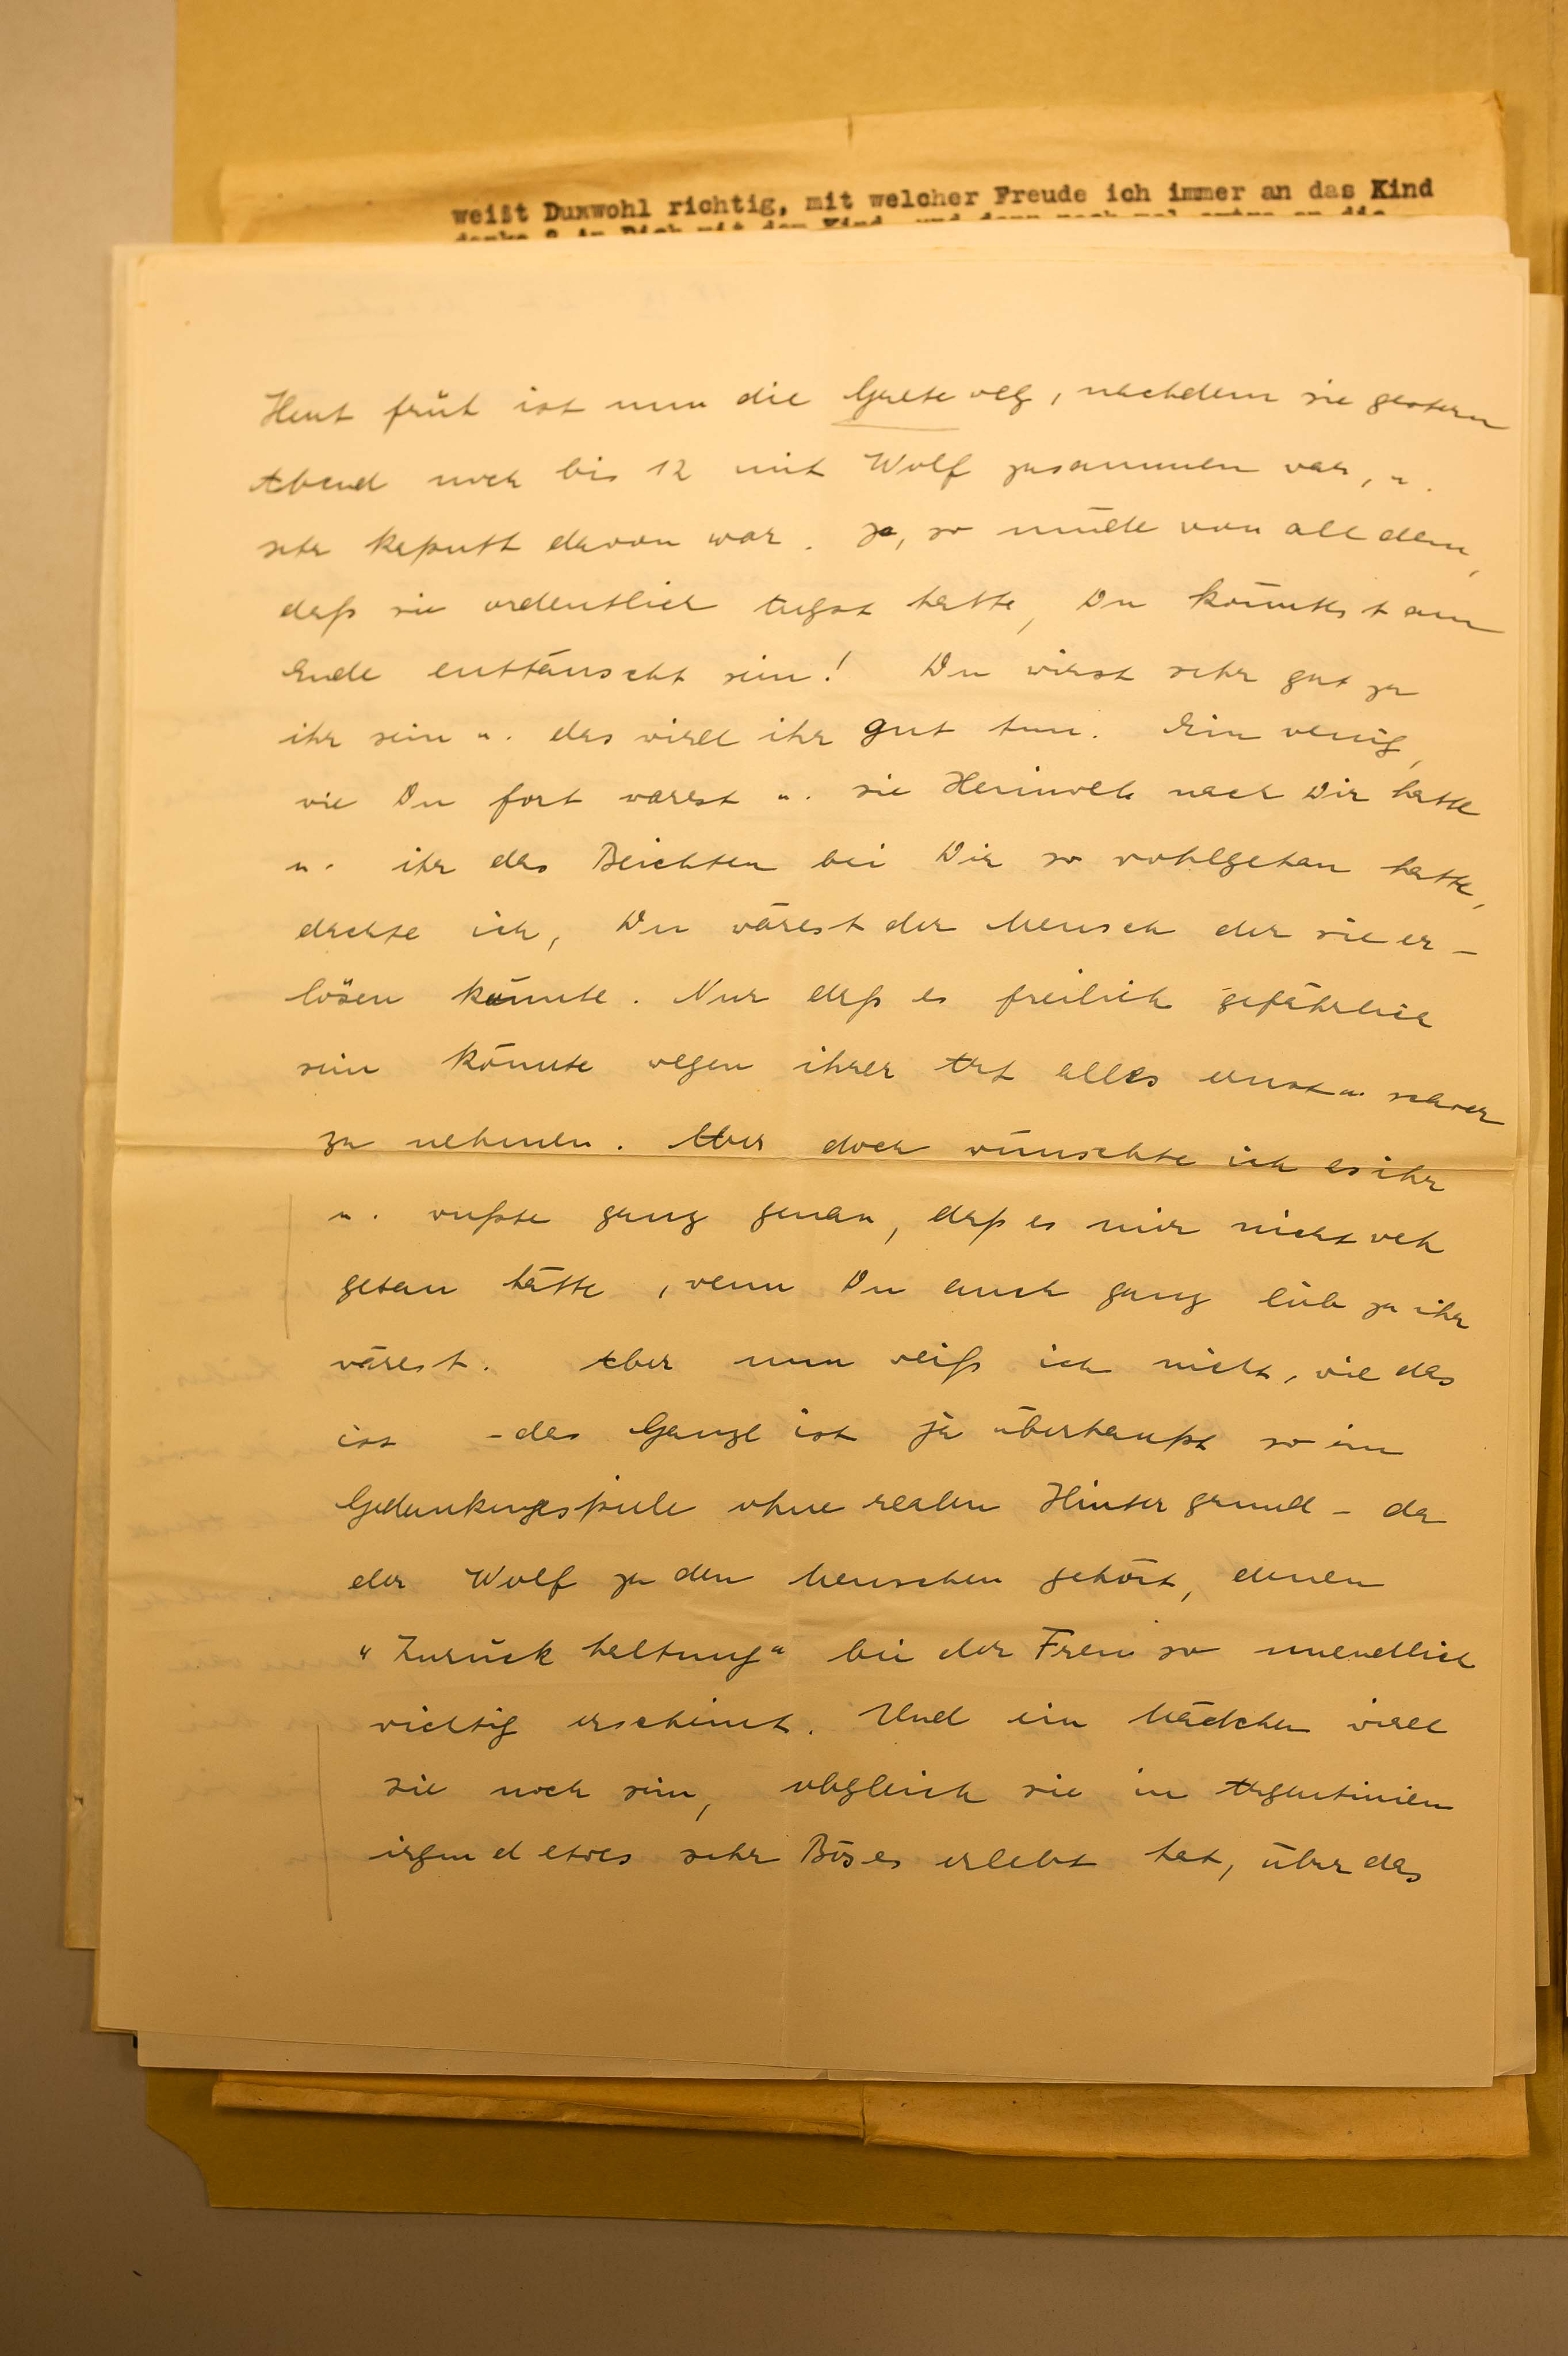 weißt Duxwohl richtig, mit welcher Freude ich immer an das Kind
Heut früh ist nun die Grete weg, nachdem sie gestern
Abend noch bis 12 mit Wolf zusammen war, u.
sehr kaputt davon war. Ja, so müde von all dem,
daß sie ordentlich Angst hatte, Du könntest am
Ende enttäuscht sein! Du wirst sehr gut zu
ihr sein u. das wird ihr gut tun. Ein wenig,
wie Du fort warest u. sie Heimweh nach Dir hatte
u. ihr das Beichten bei Dir so wohlgetan hatte,
dachte ich, Du wärest der Mensch der sie er-
lösen könnte. Nur daß es freilich gefährlich
sein könnte wegen ihrer Art alles ernst u. schwer
zu nehmen. Aber doch wünschte ich es ihr
u. wußte ganz genau, daß es mir nicht weh
getan hätte, wenn Du auch ganz lieb zu ihr
wärest. Aber nun weiß ich nicht, wie das
ist - das Ganze ist ja überhaupt so ein
Gedankengespiele ohne realen Hintergrund - da
der Wolf zu den Menschen gehört, denen
"Zurückhaltung" bei der Frau so unendlich
wichtig erscheint. Und ein Mädchen wird
sie noch sein, obgleich sie in Argentinien
irgend etwas sehr Böses erlebt hat, über das